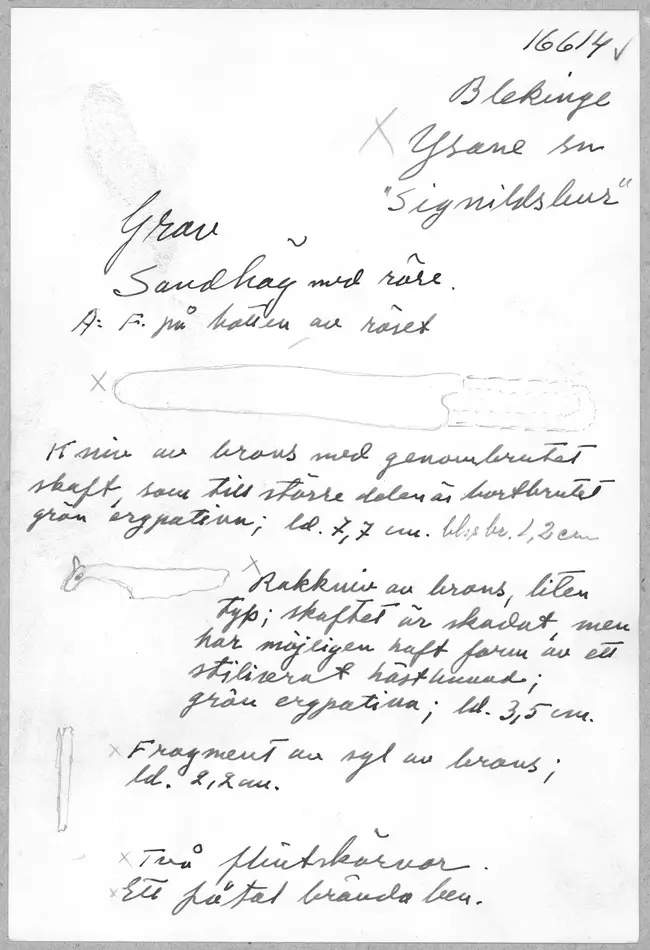 16614
Blekinge
Ysane sn
"Signildsbur"
Grav
Sandhög med röse.
A: F. på botten av röset
Kniv av brons med genombrutet
skaft, som till större delen är bortbrutet
grön ergpatina; ld. 7,7 cm. bl. br. 1,2 cm
Rakkniv av brons, liten
typ; skaftet är skadat, men
har möjligen haft form av ett
stiliserat hästhuvud;
grön ergpatina; ld. 3,5 cm.
Fragment av syl av brons;
ld. 2,2 cm.
Två flintskärvor.
Ett fåtal brända ben.